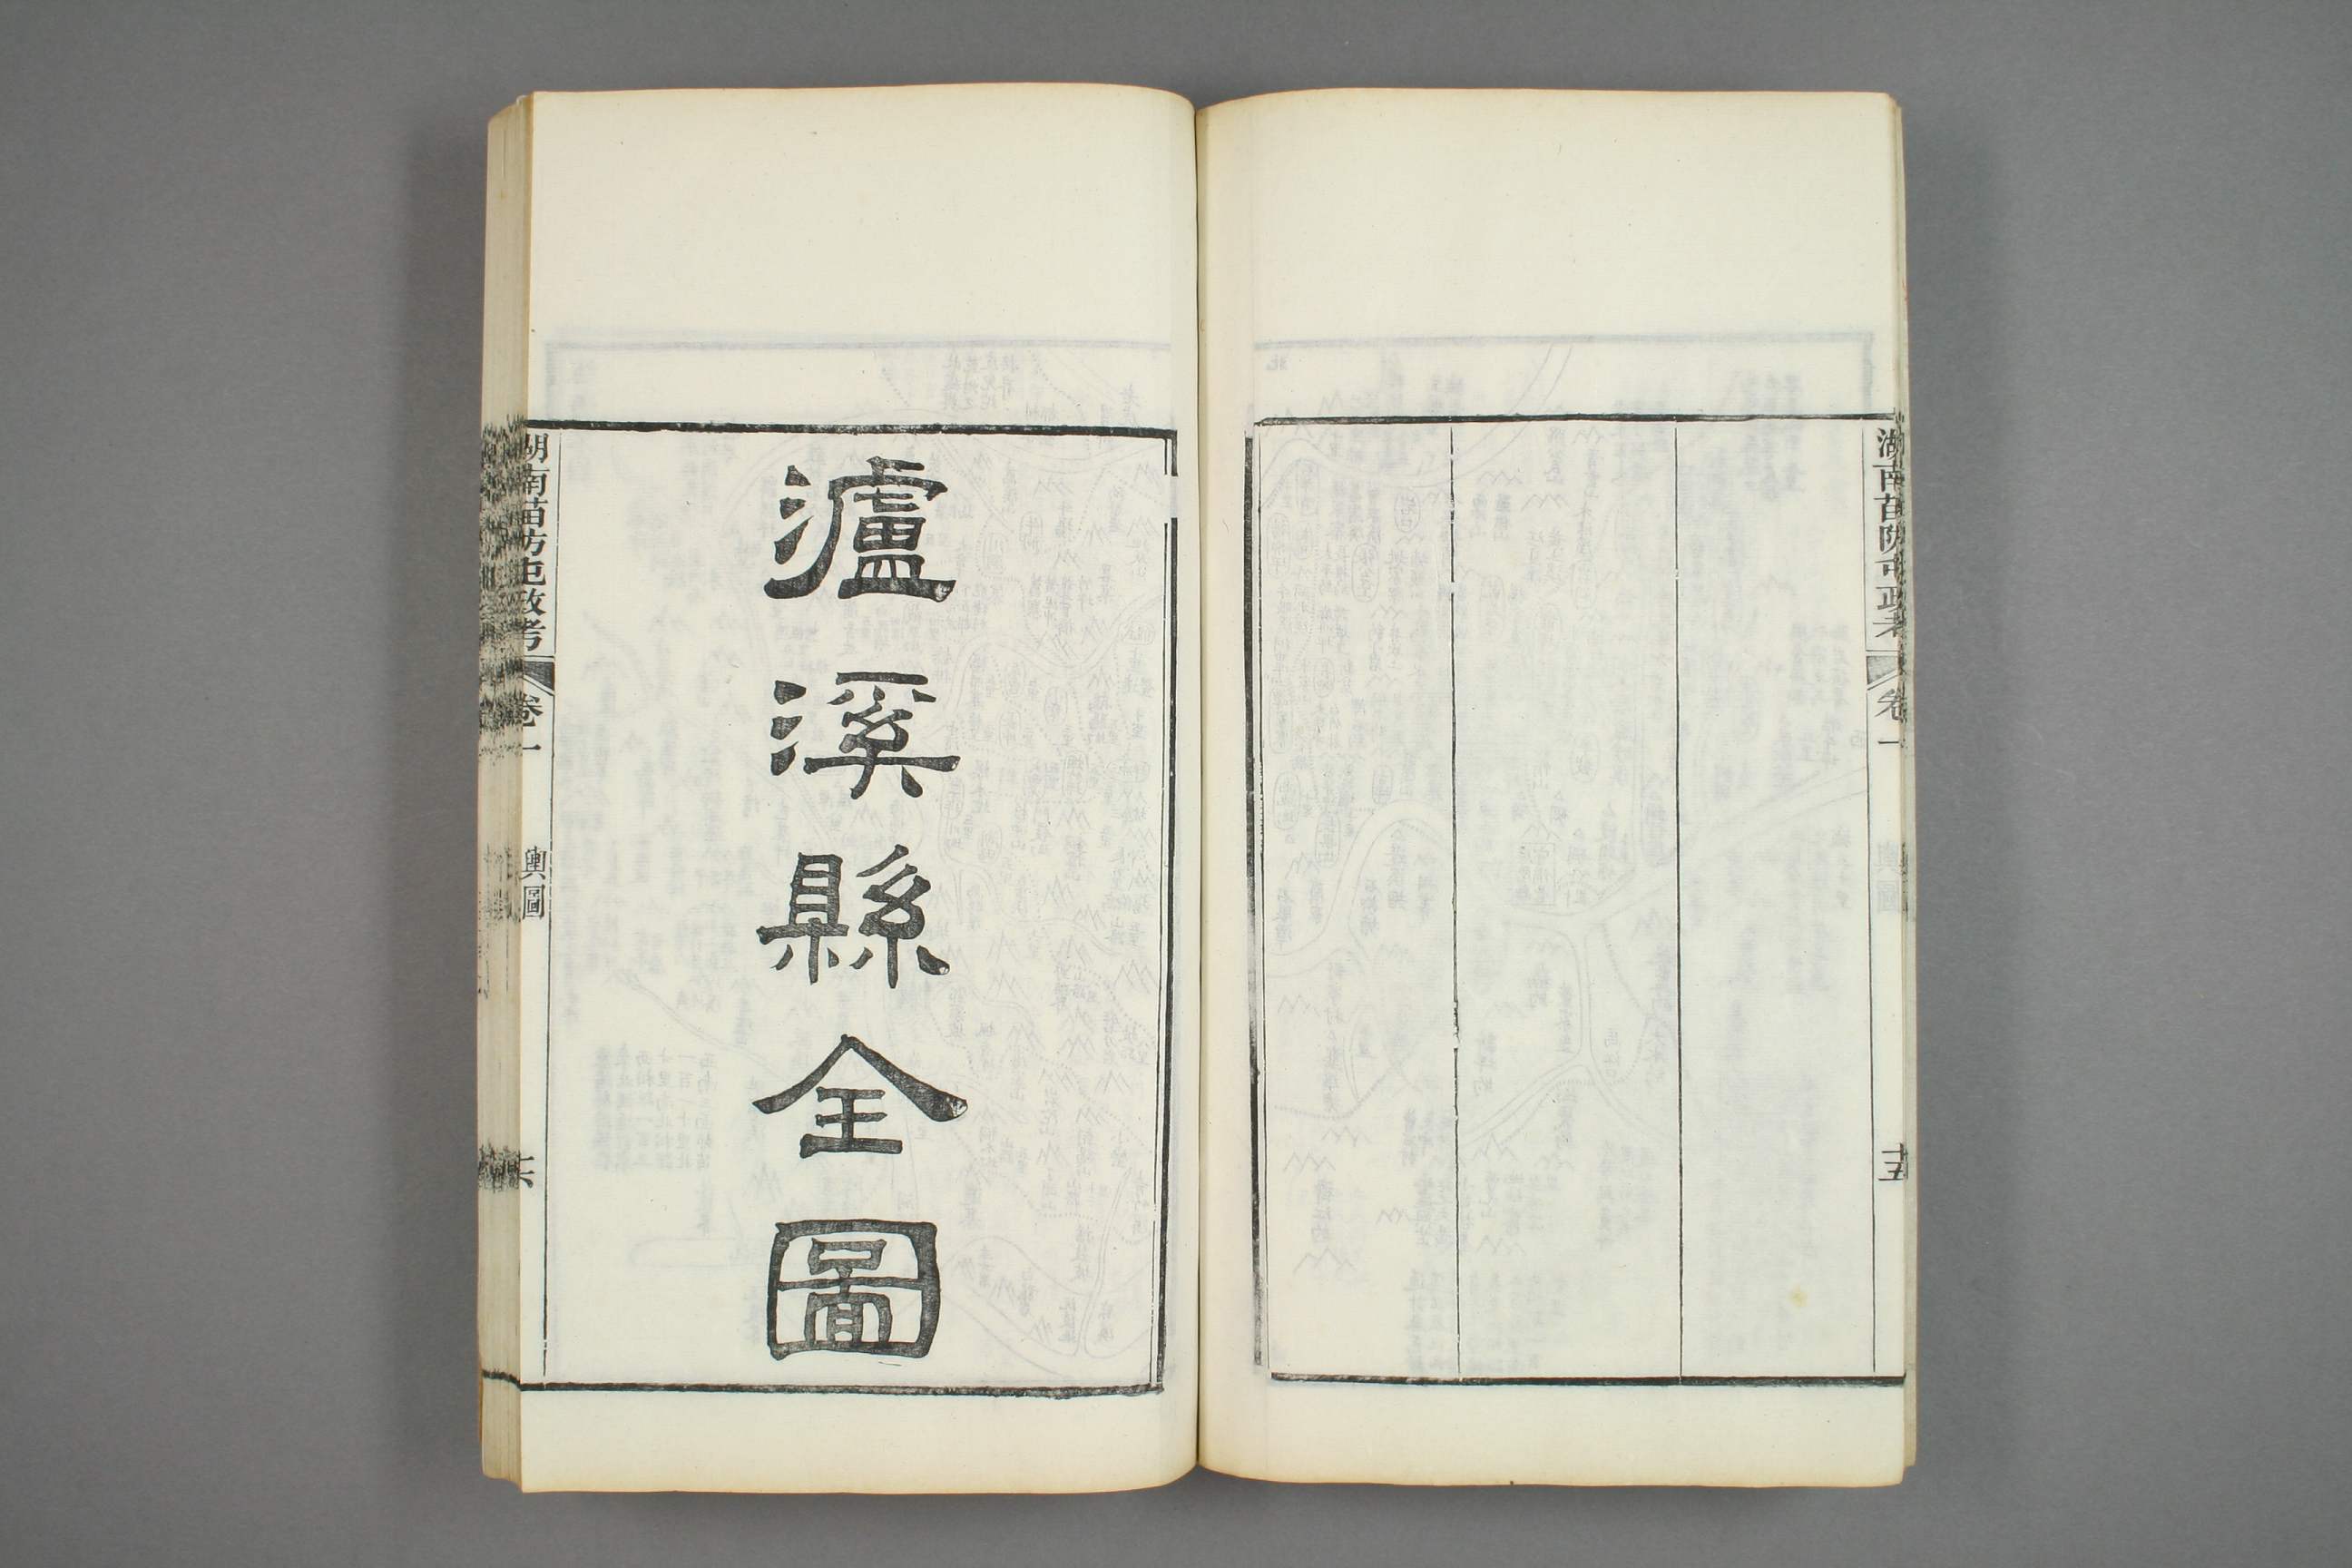 湖南苗防屯政考
卷一
十五
瀘溪縣全圖
湖南苗防屯政考
卷一
輿圖